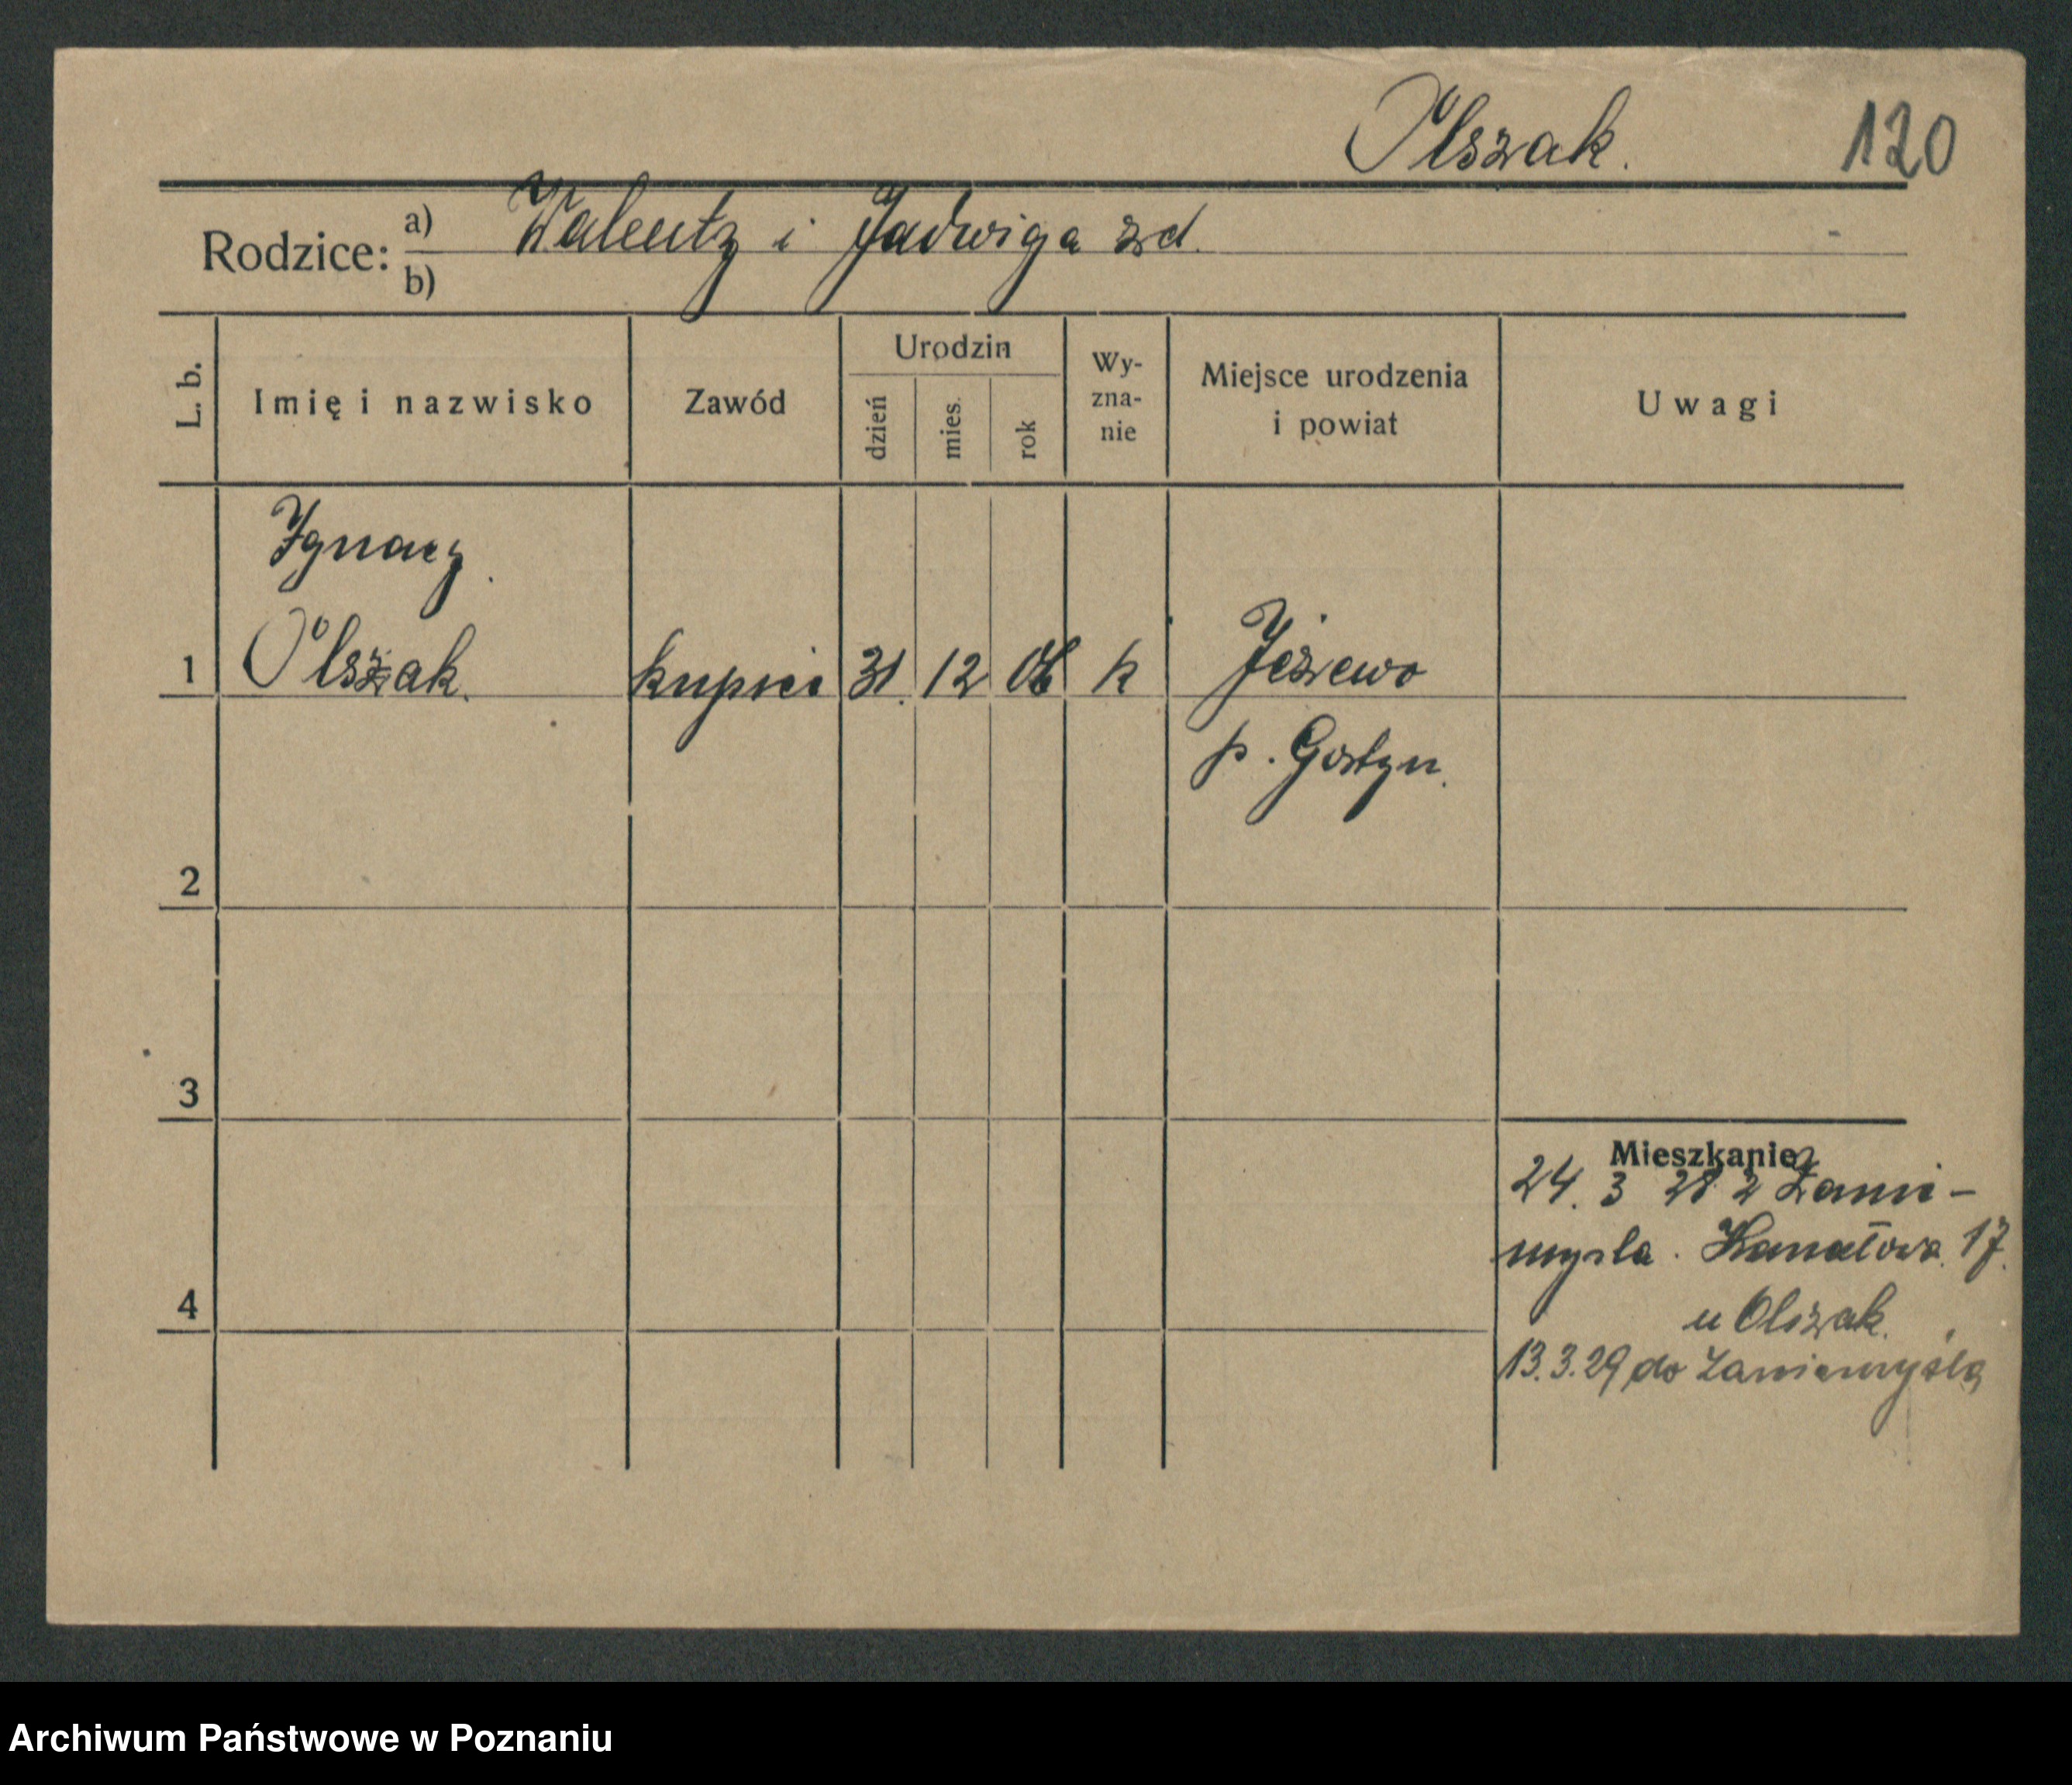 Olszak.
120
Rodzice:
a) Walenty i Jadwiga zd.
b)
L. b.
Imię i nazwisko
Zawód
Urodzin
dzień
mies.
rok
Wy-
zna-
nie
Miejsce urodzenia
i powiat
Uwagi
Ignacy
1 Olszak. kupiec 31. 12 06 k Jeżewo
p. Gostyn.
2
3
Mieszkanie
24. 3 28 z Zanie-
mysla. Kanałowa 17.
4
u Olszak.
13.3.29 do Zaniemyśla
Archiwum Państwowe w Poznaniu